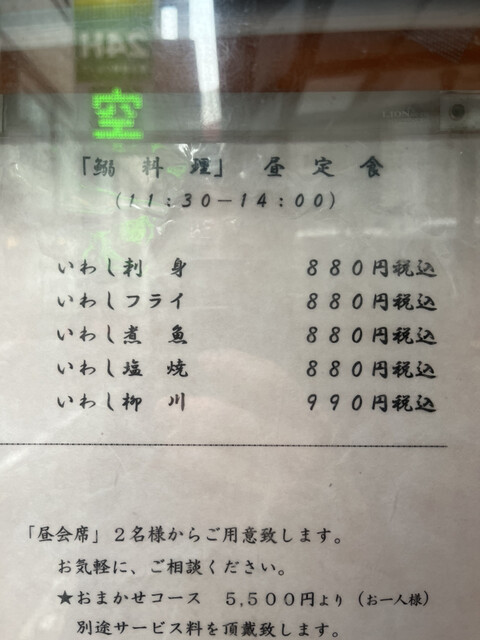 24H
空
「鰯 料 理」 昼 定 食
(11:30－14:00)
いわし刺 身 880円税込
いわしフライ 880円税込
いわし煮 魚 880円税込
いわし塩 焼 880円税込
いわし柳 川 990円税込
「昼会席」２名様からご用意致します。
お気軽に、ご相談ください。
★おまかせコース 5,500円より（お一人様）
別途サービス料を頂戴致します。